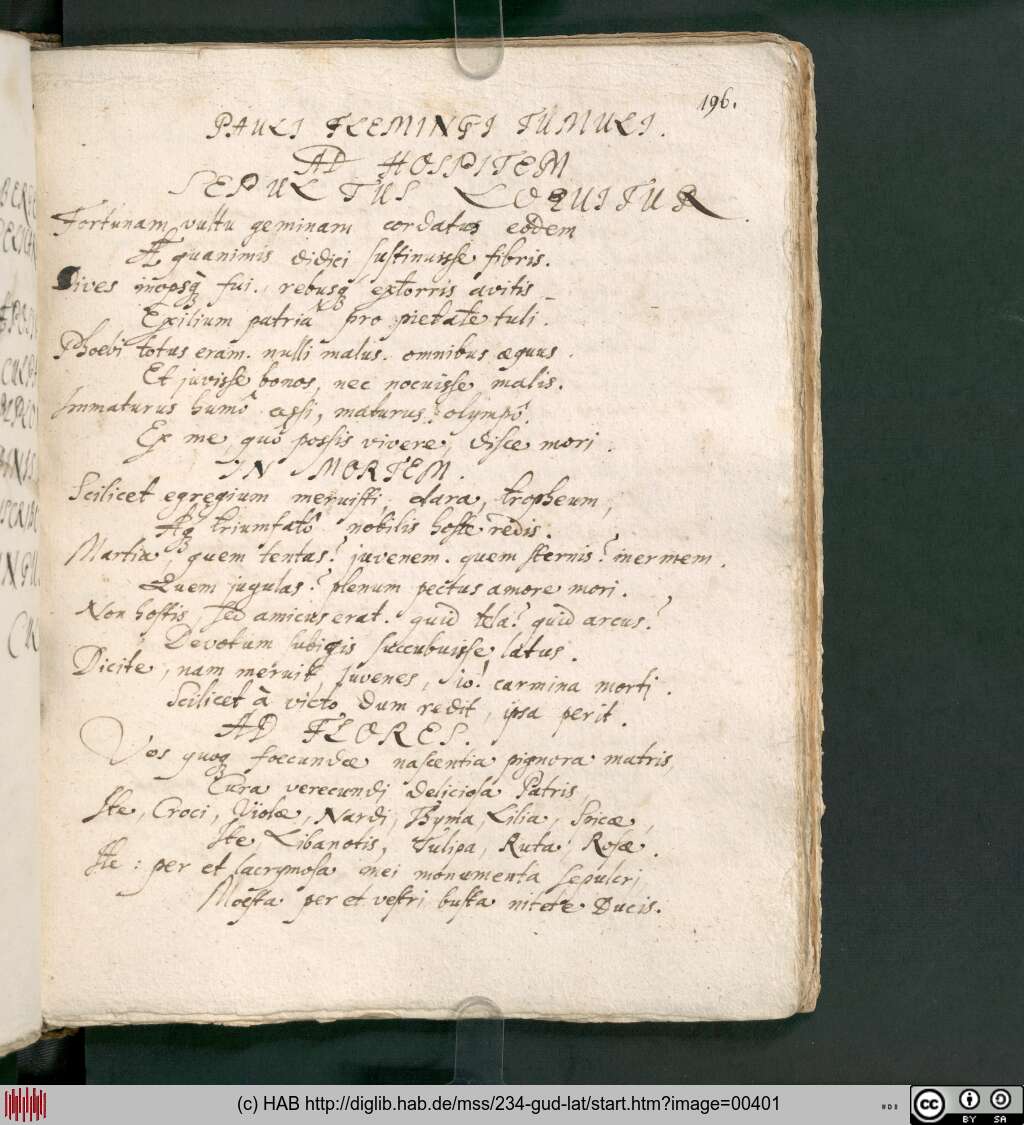 196.
PAULI FLEMINGI TUMULI.
AD HOSPITEM
SEPULTUS LOQUITUR.
Fortunam vultu geminam cordatus eodem
Æquanimis didici sustinuisse fibris.
Dives inopsq; fui, rebusq; extorris avitis
Exilium patria pro pietate tuli.
Phoebi totus eram. nulli malus. omnibus æquus.
Et juvisse bonos, nec nocuisse malis.
Immaturus humô cessi, maturus olympô.
Ex me, quô possis vivere, disce mori.
IN MORTEM.
Scilicet egregium meruisti clara, tropheum,
Atq; triumfatô nobilis hoste redis.
Martia, quem tentas? juvenem. quem sternis? inermem.
Quem jugulas? plenum pectus amore mori.
Non hostis, sed amicus erat. quid tela? quid arcus?
Devotum subigis succubuisse latus.
Dicite, nam meruit, juvenes, iô! carmina morti.
Scilicet à victo dum redit, ipsa perit.
AD FLORES.
Vos quoq; foecundæ nascentia pignora matris
Cura verecundi deliciosa Patris,
Ite, Croci, Violæ, Nardi, Thyma, Lilia, Spicæ,
Ite Libanotis, Tulipa, Ruta, Rosæ.
Ite: per et lacrymosa mei monumenta sepulcri,
Moesta per et vestri busta nitete Ducis.
(c) HAB http://diglib.hab.de/mss/234-gud-lat/start.htm?image=00401
cc BY SA